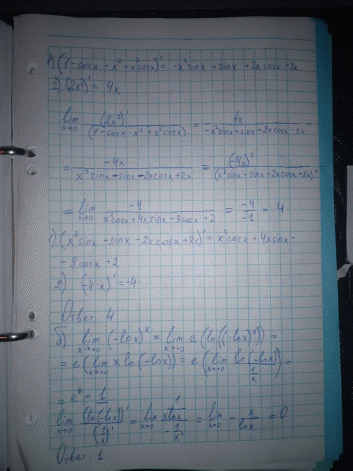 1) (1-cosx - x² + x²cosx)' = -x²sinx + sinx + 2xcosx - 2x
2) (2x²)' = 4x
lim x→0 (2x²)' / (1-cosx-x²+x²cosx)' = 4x / (-x²sinx+sinx+2xcosx-2x) =
= -4x / (x²sinx-sinx-2xcosx+2x) = (-4x)' / (x²sinx-sinx-2xcosx+2x)' =
= lim x→0 -4 / (x²cosx+4xsinx-3cosx+2) = -4/-1 = 4
1) (x²sinx - sinx - 2xcosx + 2x)' = x²cosx + 4xsinx -
- 3cosx + 2
2) (-4x)' = -4
Ответ: 4
б) lim x→+0 (-lnx)^x = lim x→+0 e(ln((-lnx)^x)) =
= e(lim x→+0 x ln(-lnx)) = e(lim x→+0 ln(-lnx) / (1/x)) =
= e⁰ = 1
lim x→0 (ln(-lnx))' / (1/x)' = lim x→0 (1/(xlnx)) / (-1/x²) = lim x→0 - x/lnx = 0
Ответ: 1